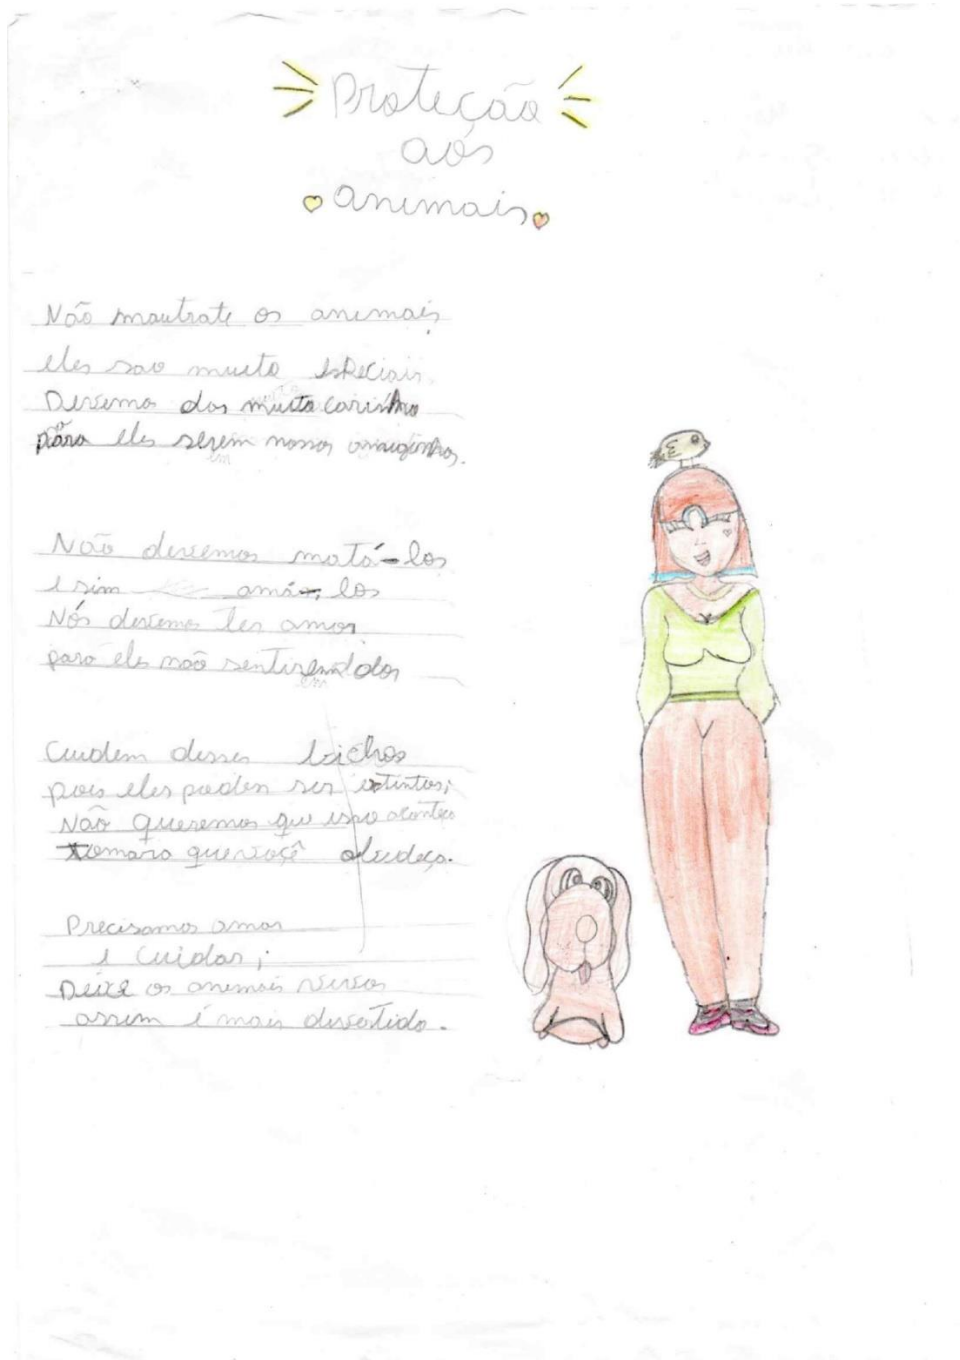 Proteção
aos
animais
Não mautrate os animais,
eles sao muito especiais.
Devemos dar muito carinho
para eles serem nossos amiguinhos.
em
Não devemos matá-los
e sim amá-los
Nós devemos ter amor
para eles não sentirem dor
em
Cuidem desses bichos
pois eles podem ser extintos;
Não queremos que isso aconteça
tomara que você obedeça.
Precisamos amar
e cuidar;
Deixe os animais vivos
assim é mais divertido.